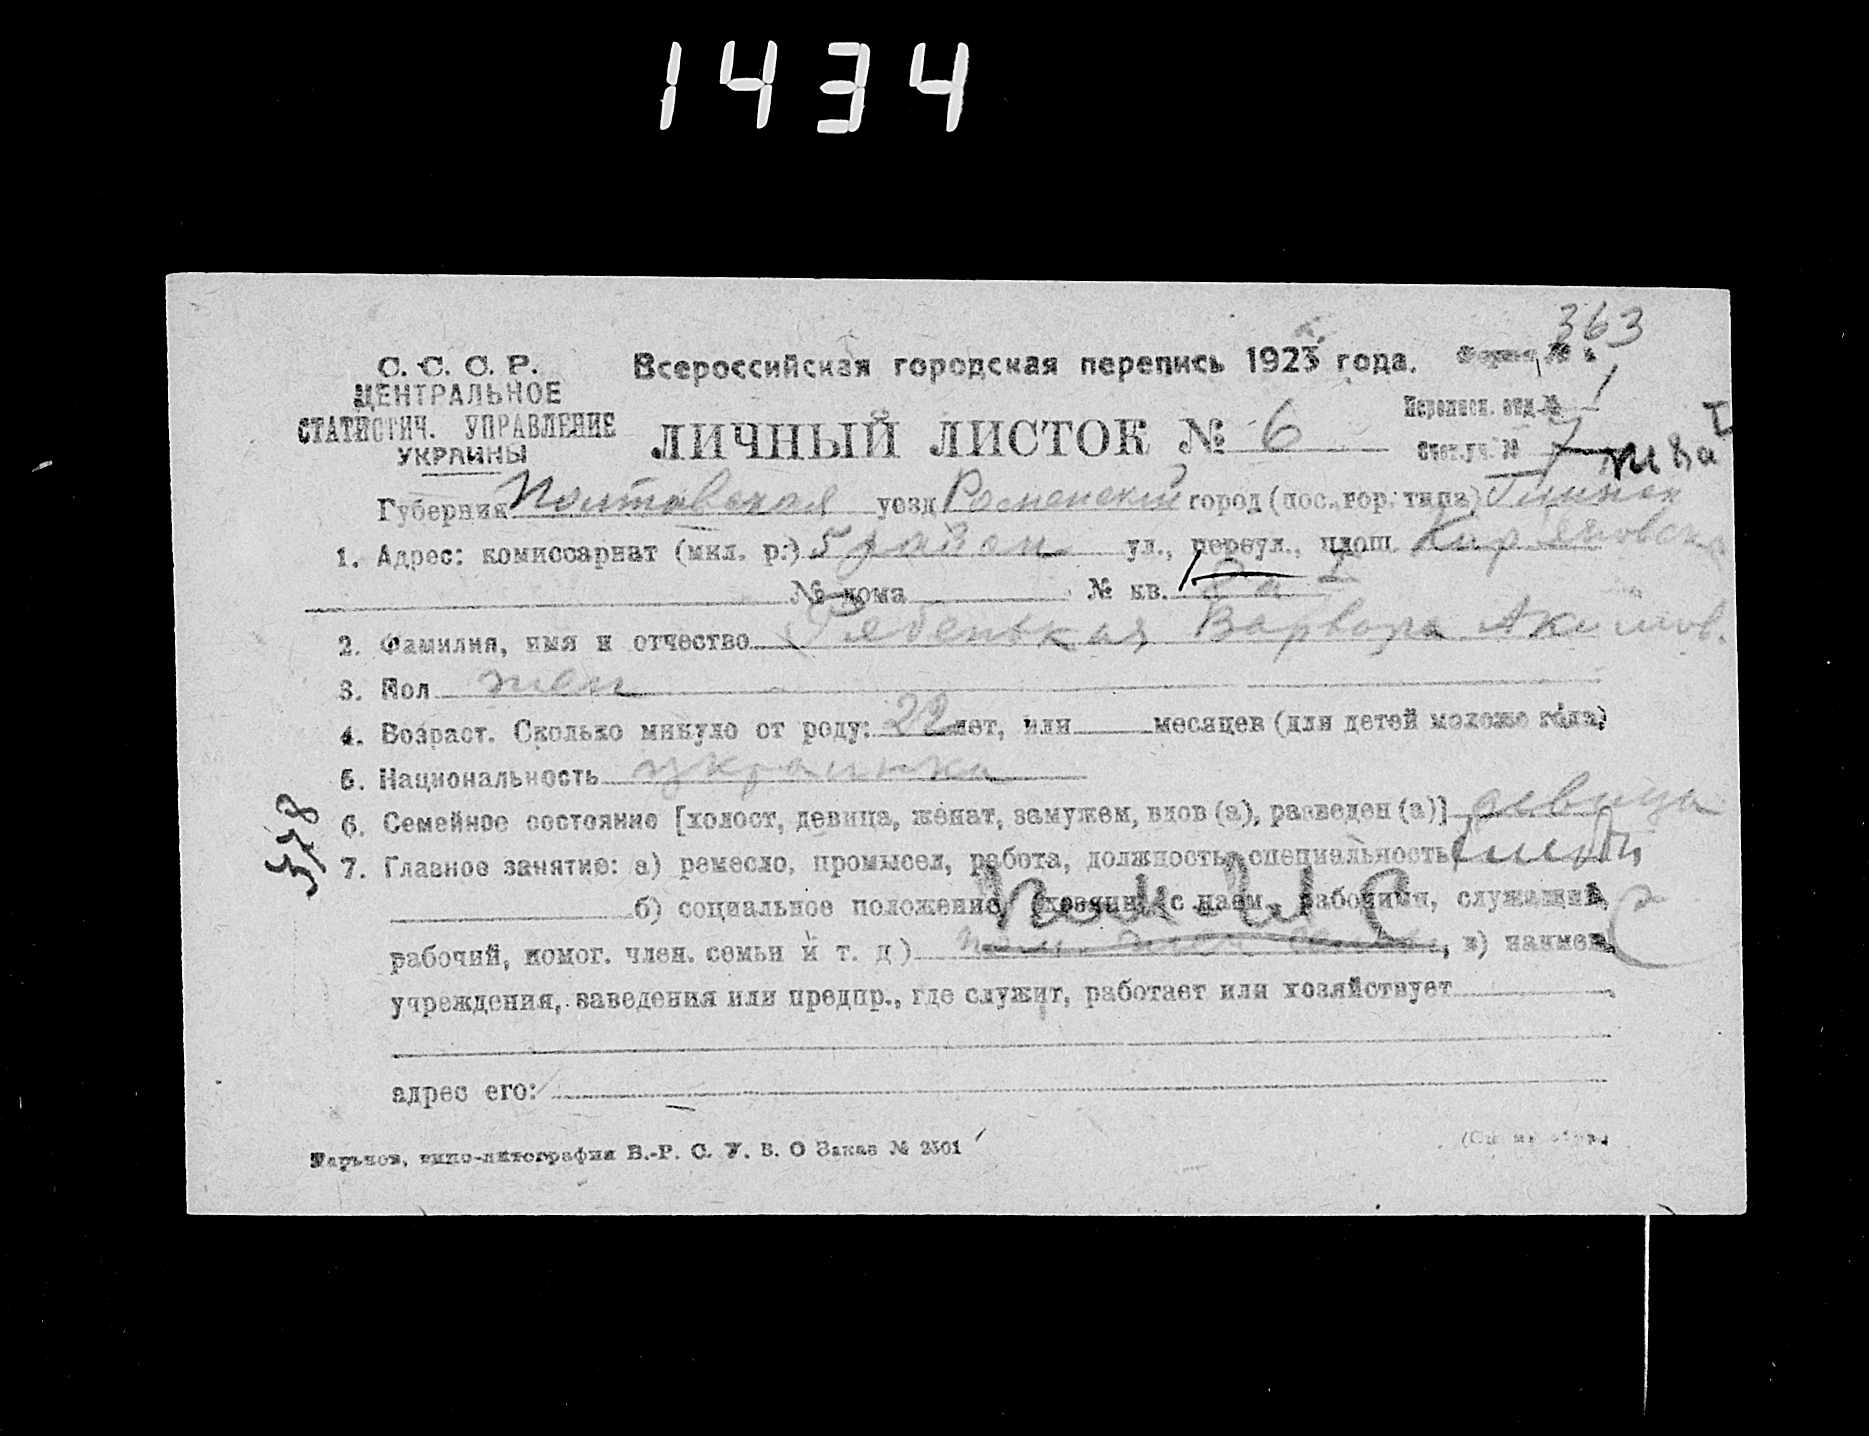 1434
363
С. С. С. Р.
ЦЕНТРАЛЬНОЕ
СТАТИСТИЧ. УПРАВЛЕНИЕ
УКРАИНЫ
Всероссийская городская перепись 1923 года.
Форма №
ЛИЧНЫЙ ЛИСТОК № 6
Переписн. отд. № 1
Счет. уч. № 7
Губерния Полтавская уезд Роменский город (пос. гор. типа) Глинск
1. Адрес: комиссариат (мил. р.) 5 район ул., переул., площ.
№ дома № кв.
2. Фамилия, имя и отчество Рябенькая Варвара Акимов.
3. Пол жен
4. Возраст. Сколько минуло от роду: 22 лет, или месяцев (для детей моложе года)
5. Национальность украинка
6. Семейное состояние [холост, девица, женат, замужем, вдов (а), разведен (а)] девица
578
7. Главное занятие: а) ремесло, промысел, работа, должность, специальность
б) социальное положение (хозяин с наем. рабочими, служащий,
рабочий, помог. член. семьи и т. д) пом. член семьи, в) наимен.
учреждения, заведения или предпр., где служит, работает или хозяйствует
адрес его:
Харьков, типо-литография В.-Р. С. У. В. О Заказ № 2301